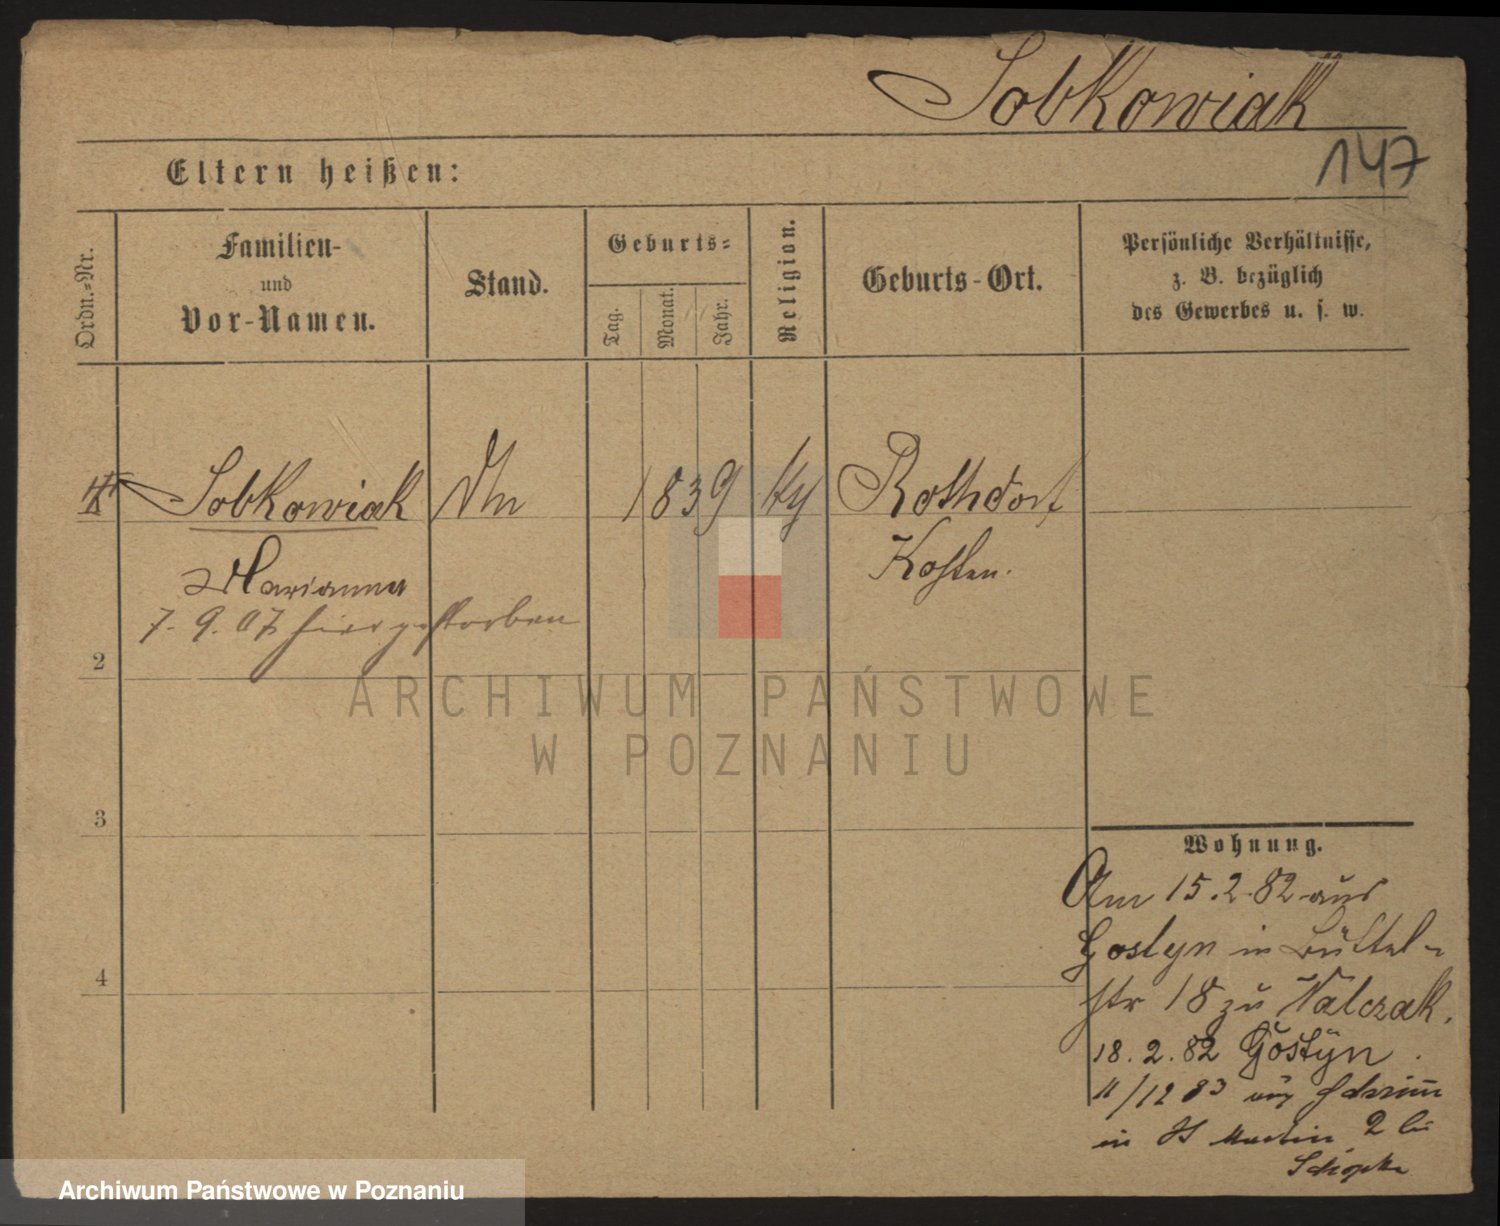 Sobkowiak
147
Eltern heißen:
Ordn.-Nr.
Familien-
und
Vor-Namen.
Stand.
Geburts-
Tag.
Monat.
Jahr.
Religion.
Geburts-Ort.
Persönliche Verhältnisse,
z. B. bezüglich
des Gewerbes u. s. w.
1 Sobkowiak 1839 Rothdorf
Marianna Kosten.
7. 9. 07 hier gestorben
2
3
4
Wohnung.
Am 15.2.82 aus
Gostyn in Büttel-
str 18 zu Walczak.
18. 2. 82 Gostyn.
11/12 83 aus
in St Martin 2 bei
ARCHIWUM PAŃSTWOWE
W POZNANIU
Archiwum Państwowe w Poznaniu